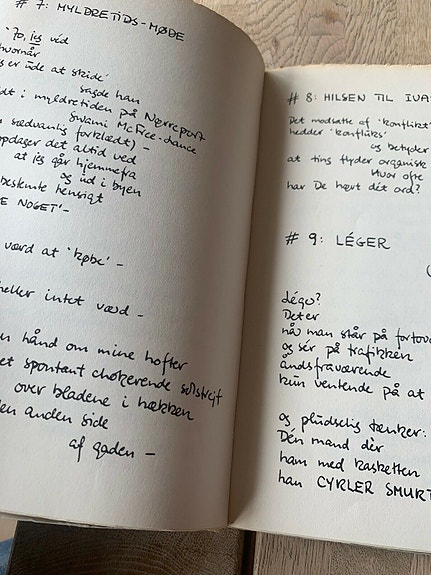 # 7: MYLDRETIDS-MØDE
'Jo, jeg véd
hvornår
er ude at skide'
sagde han
i myldretiden på Nørreport
Swami McFree-lance
sædvanlig forklædt) –
opdager det altid ved
at jeg går hjemmefra
og ud i byen
bestemte hensigt
NOGET'–
værd at 'købe' –
heller intet værd –
hånd om mine hofter
et spontant chokerende solstrejf
over bladene i hækken
den anden side
af gaden –
# 8: HILSEN TIL
Det modsatte af 'konflikt'
hedder 'konfluks'
og betyder
at ting flyder organisk
Hvor ofte
har De hørt dét ord?
# 9: LÉGER
Léger?
Det er
når man står på
og sér på trafikken
åndsfraværende
kun ventende på at
og pludselig tænker:
Dén mand dèr
ham med kasketten
han CYKLER